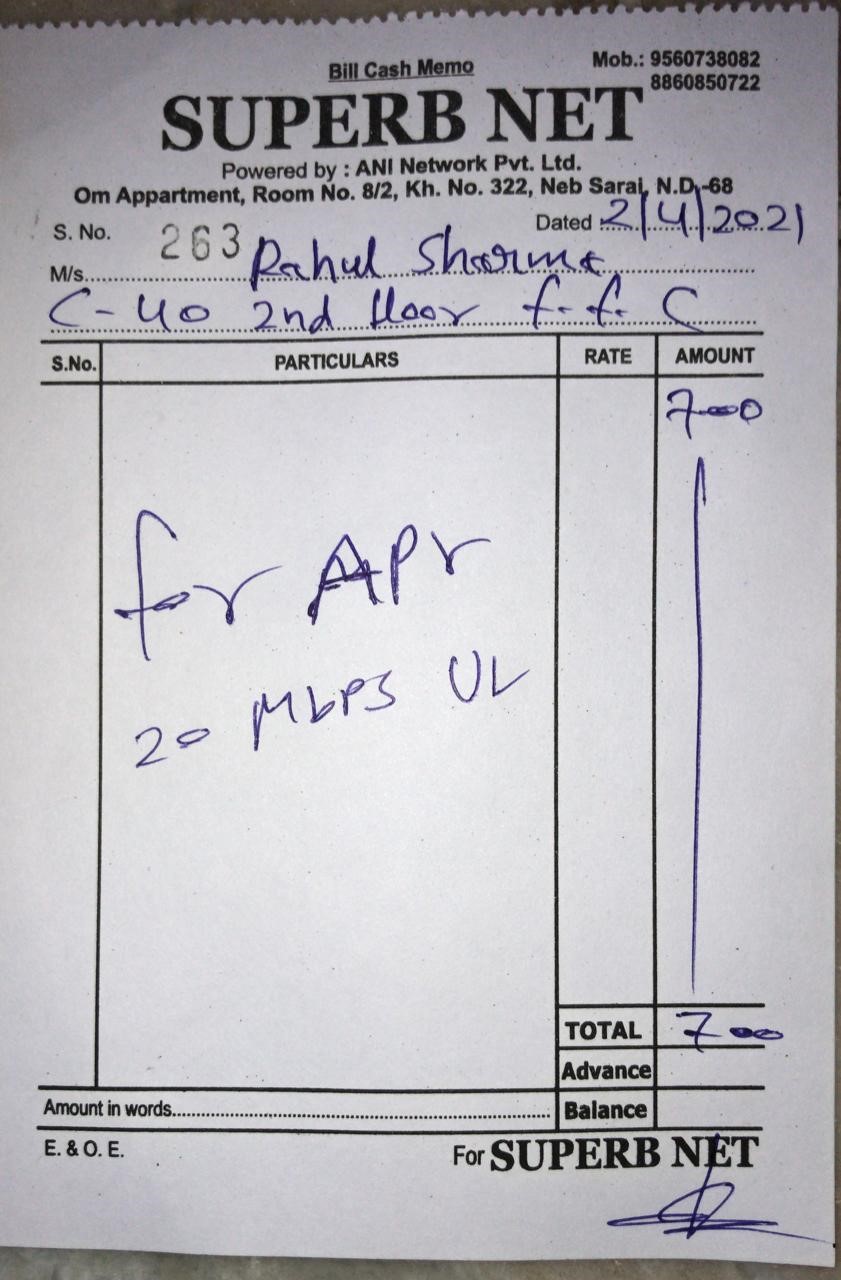 Bill Cash Memo
Mob.: 9560738082
8860850722
SUPERB NET
Powered by : ANI Network Pvt. Ltd.
Om Appartment, Room No. 8/2, Kh. No. 322, Neb Sarai, N.D.-68
S. No. 263 Dated 2/4/2021
M/s. Rahul Sharma
C-40 2nd floor f.f. C
S.No. PARTICULARS RATE AMOUNT
700
for Apr
20 MbPS UL
TOTAL 700
Advance
Amount in words Balance
E. & O. E. For SUPERB NET